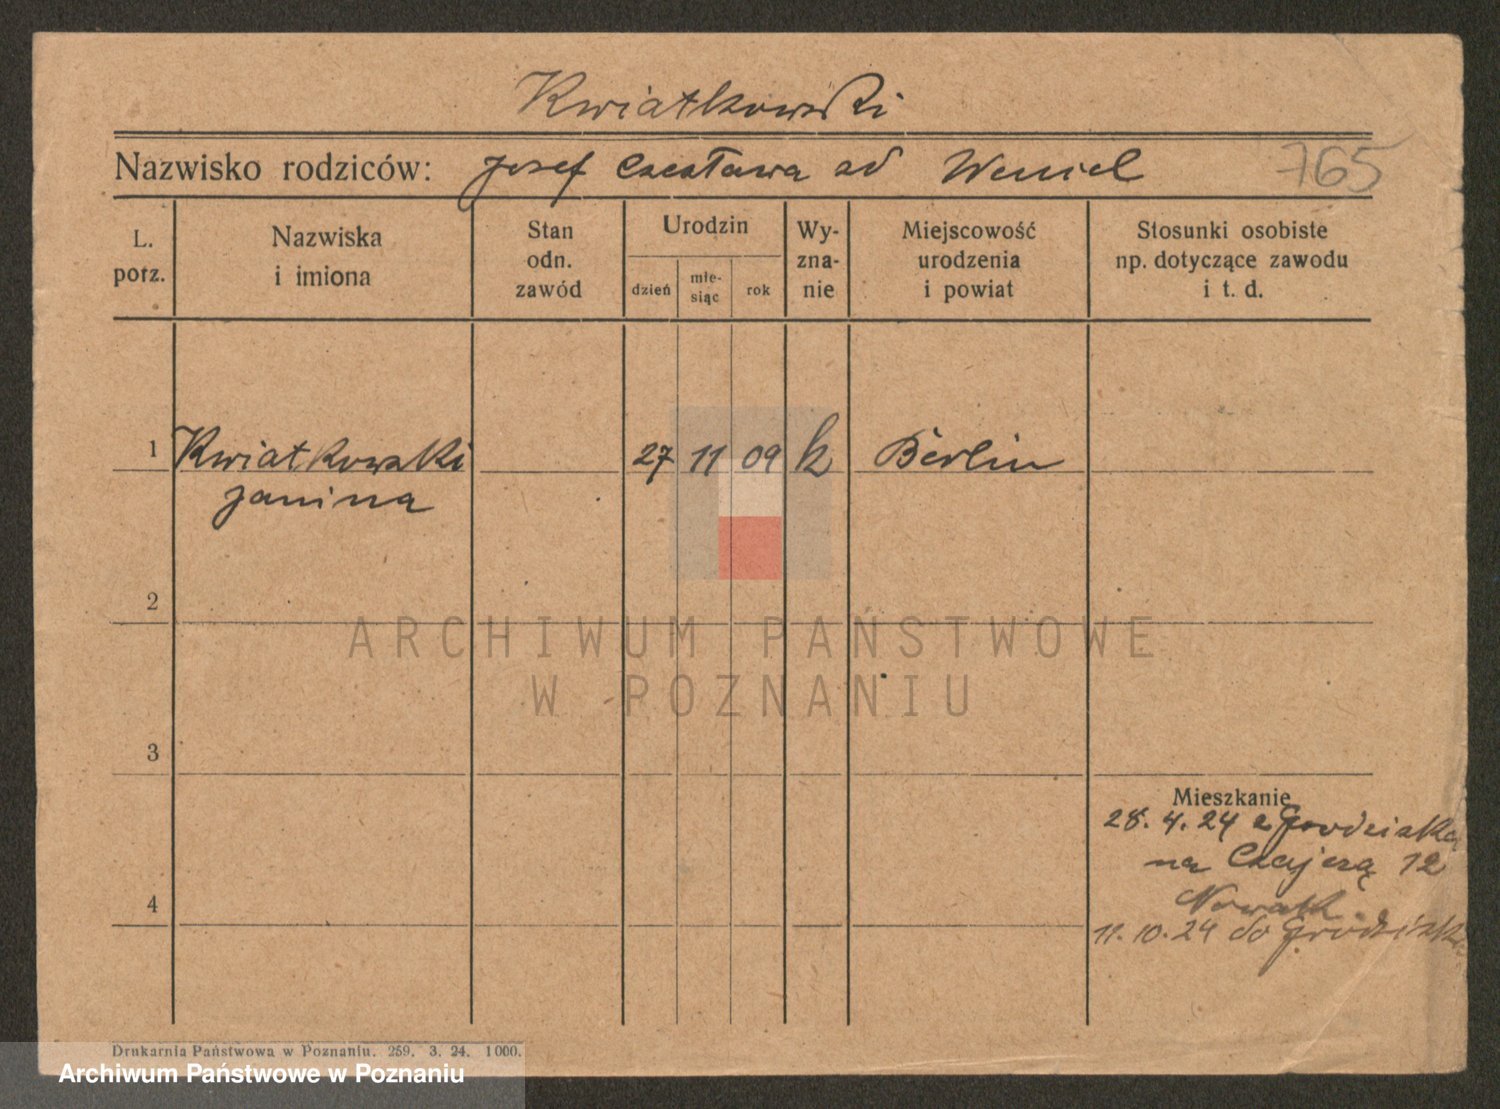 Kwiatkowski
Nazwisko rodziców: Josef Czesława zd Wenzel
765
L. porz.
Nazwiska i imiona
Stan odn. zawód
Urodzin
dzień
mie-siąc
rok
Wy-zna-nie
Miejscowość urodzenia i powiat
Stosunki osobiste np. dotyczące zawodu i t. d.
1 Kwiatkowski 27 11 09 k Berlin
Janina
2
3
4
Mieszkanie
28. 4. 24 z Grodziska
na 12
Nowak
11. 10. 24 do Grodziska
ARCHIWUM PAŃSTWOWE
W POZNANIU
Drukarnia Państwowa w Poznaniu. 259. 3. 24. 1000.
Archiwum Państwowe w Poznaniu